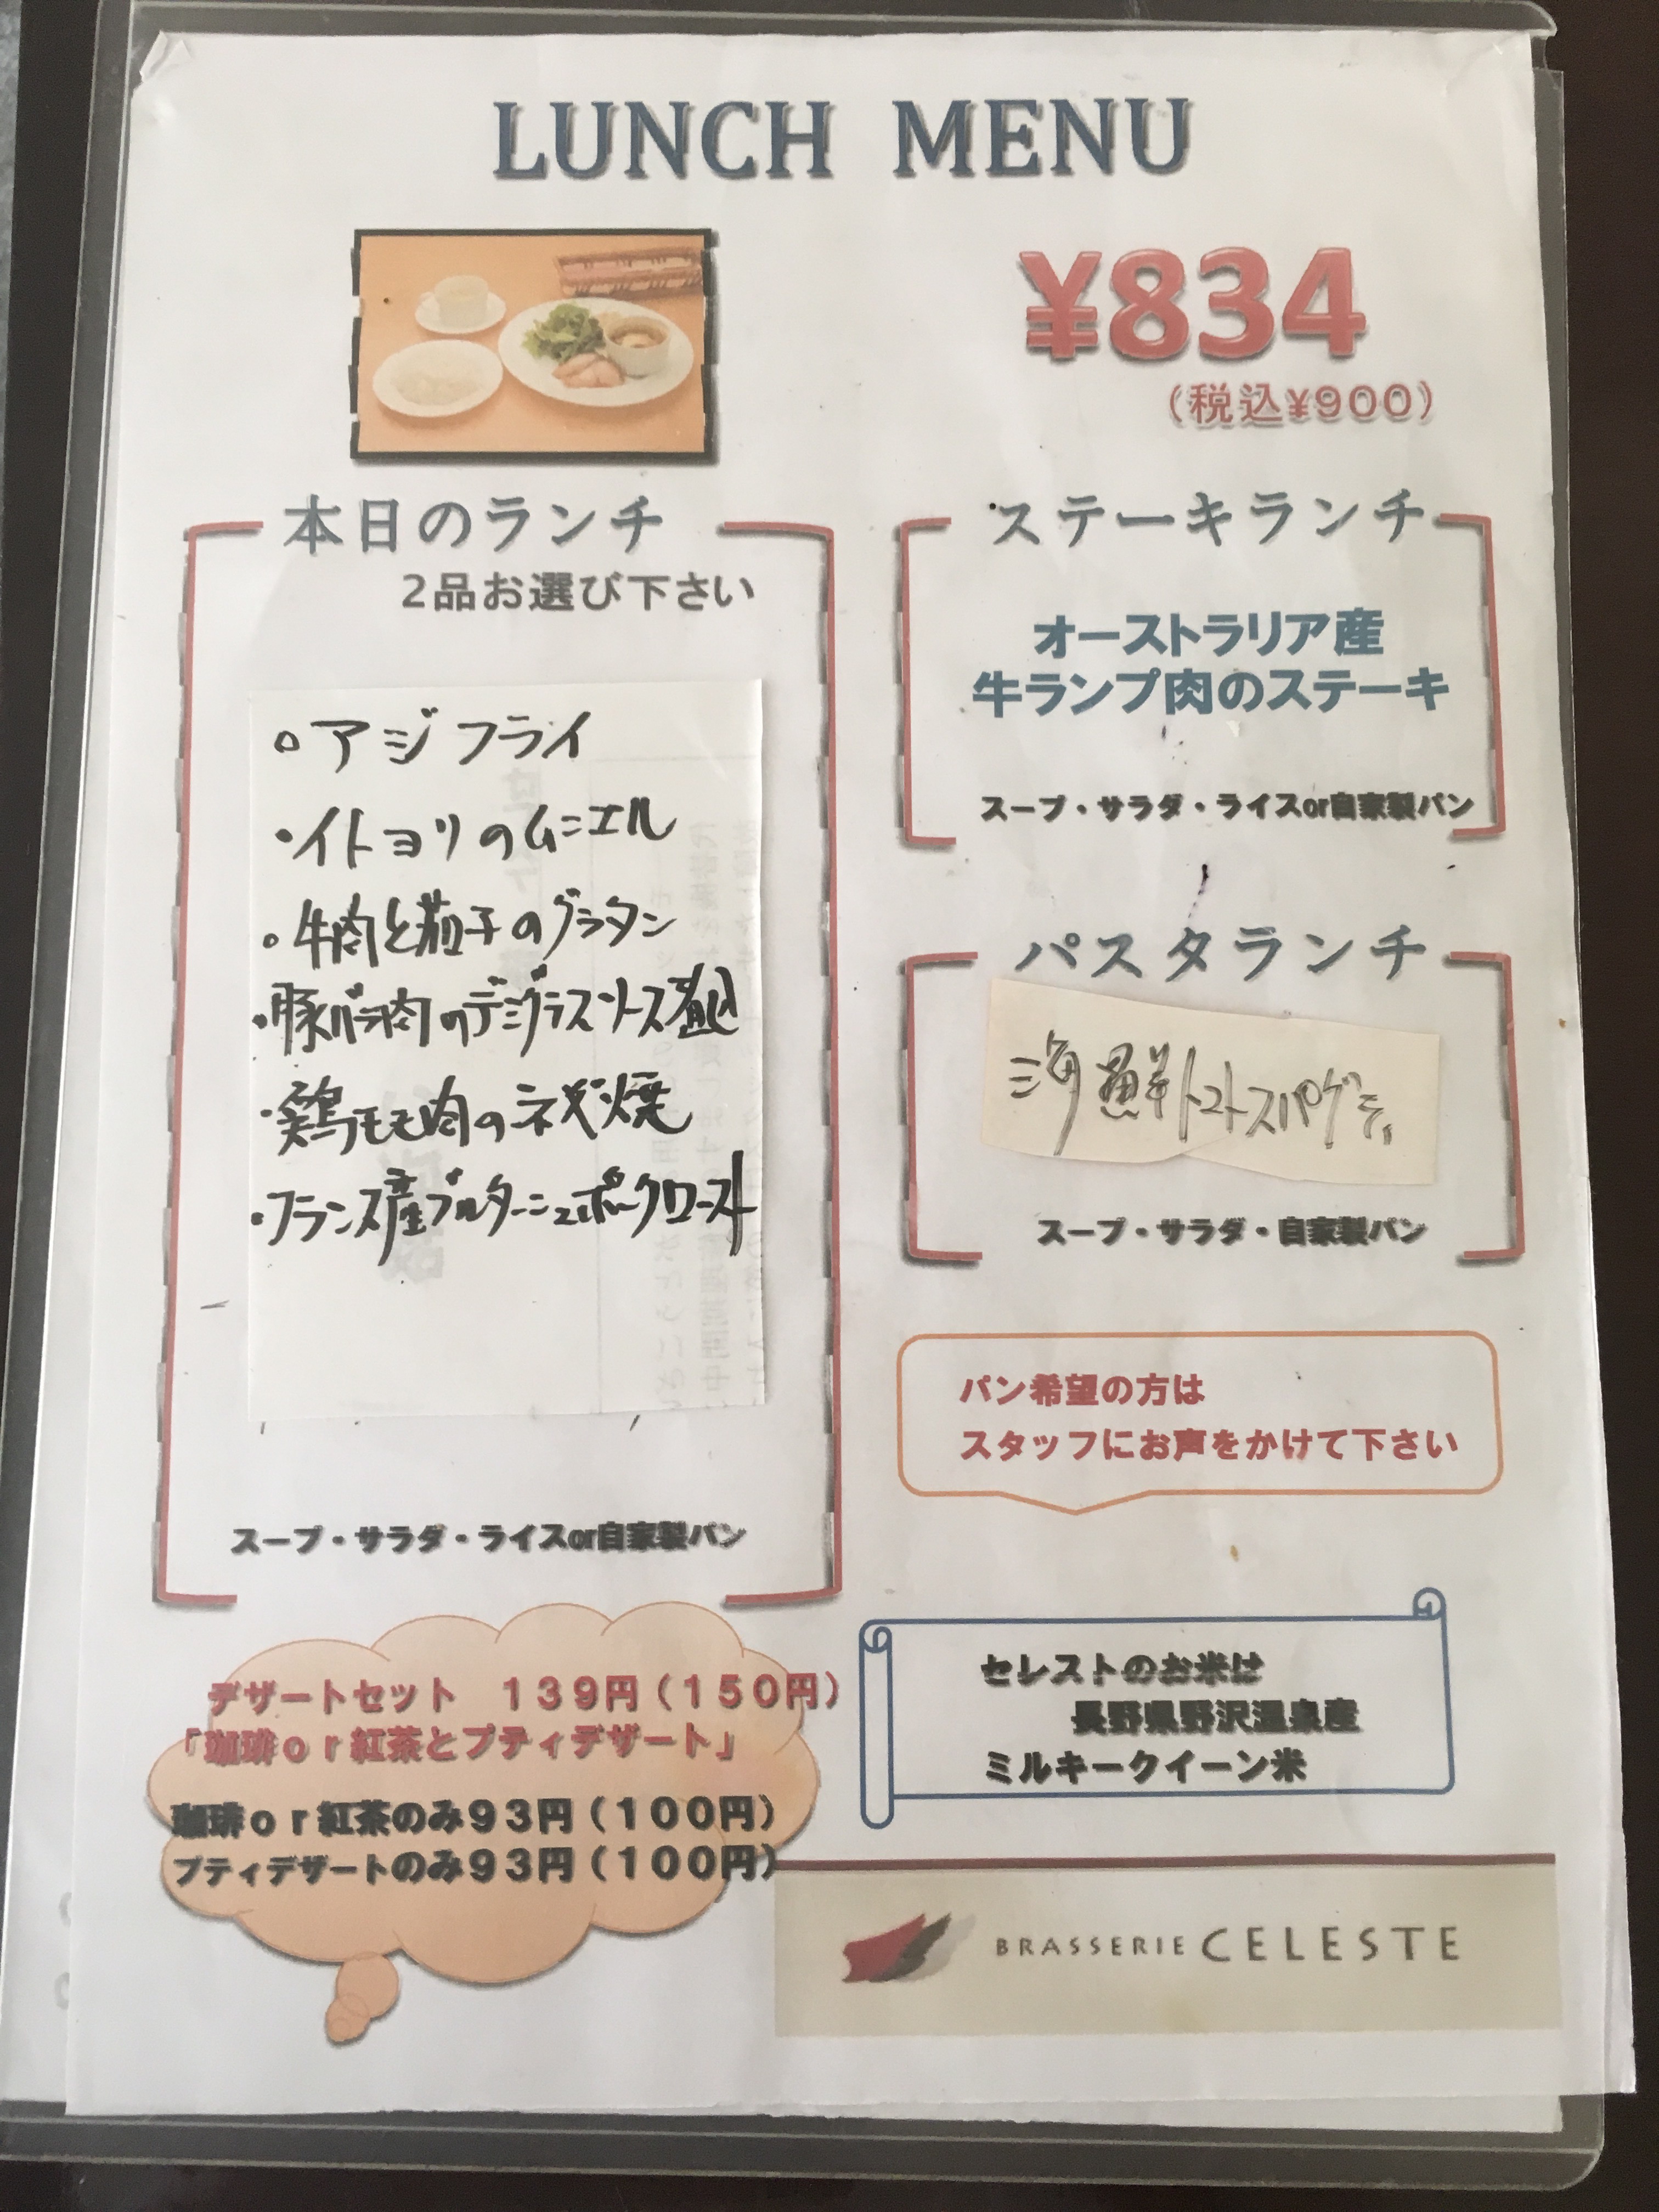 LUNCH MENU
¥834
（税込¥900）
本日のランチ
2品お選び下さい
・アジフライ
・イトヨリのムニエル
・牛肉と茄子のグラタン
・豚バラ肉のデミグラスソース煮込
・鶏モモ肉のネギ焼
・フランス産ブルターニュポークロースト
スープ・サラダ・ライスor自家製パン
ステーキランチ
オーストラリア産
牛ランプ肉のステーキ
スープ・サラダ・ライスor自家製パン
パスタランチ
海鮮トマトスパゲティ
スープ・サラダ・自家製パン
パン希望の方は
スタッフにお声をかけて下さい
デザートセット　１３９円（１５０円）
「珈琲ｏｒ紅茶とプティデザート」
珈琲ｏｒ紅茶のみ９３円（１００円）
プティデザートのみ９３円（１００円）
セレストのお米は
長野県野沢温泉産
ミルキークイーン米
BRASSERIE CELESTE